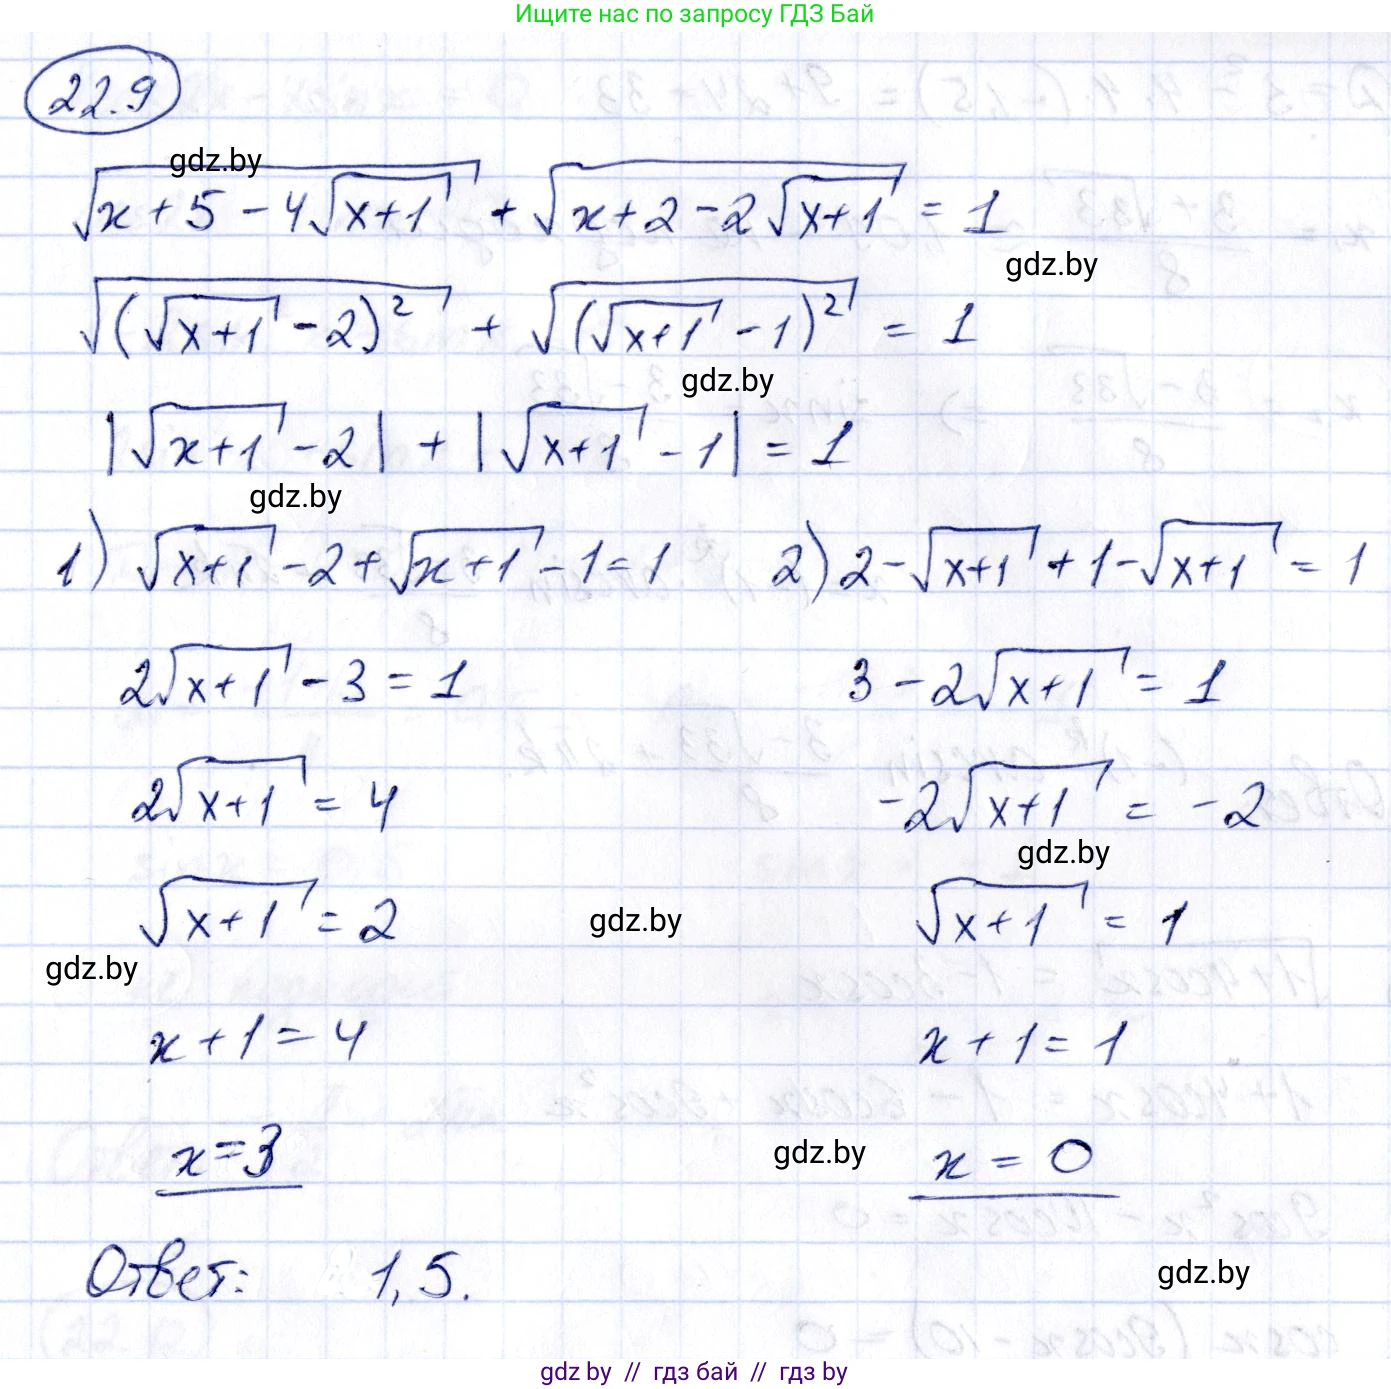 Ищите нас по запросу ГДЗ Бай
22.9
gdz.by
√(x + 5 - 4√(x+1)) + √(x+2 - 2√(x+1)) = 1
gdz.by
√((√(x+1) - 2)²) + √((√(x+1) - 1)²) = 1
gdz.by
|√(x+1) - 2| + |√(x+1) - 1| = 1
gdz.by
1) √(x+1) - 2 + √(x+1) - 1 = 1
2√(x+1) - 3 = 1
2√(x+1) = 4
√(x+1) = 2
gdz.by
x + 1 = 4
x = 3
2) 2 - √(x+1) + 1 - √(x+1) = 1
3 - 2√(x+1) = 1
-2√(x+1) = -2
gdz.by
√(x+1) = 1
gdz.by
x + 1 = 1
gdz.by
x = 0
Ответ: 1,5.
gdz.by
gdz by // гдз бай // gdz by